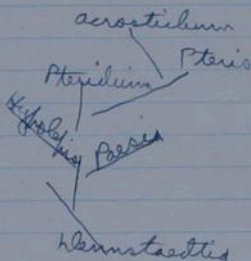 acrostichum
Pteris
Pteridium
Hypolepis
Paesia
Dennstaedtia